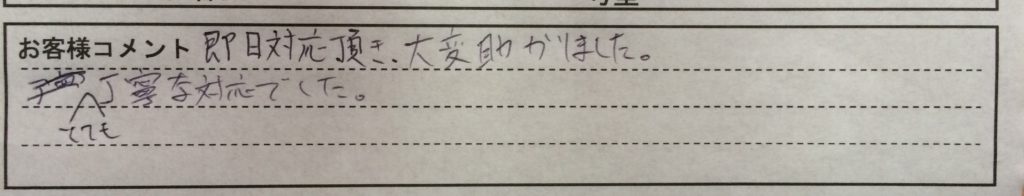 お客様コメント 即日対応頂き、大変助かりました。
丁寧な対応でした。
とても